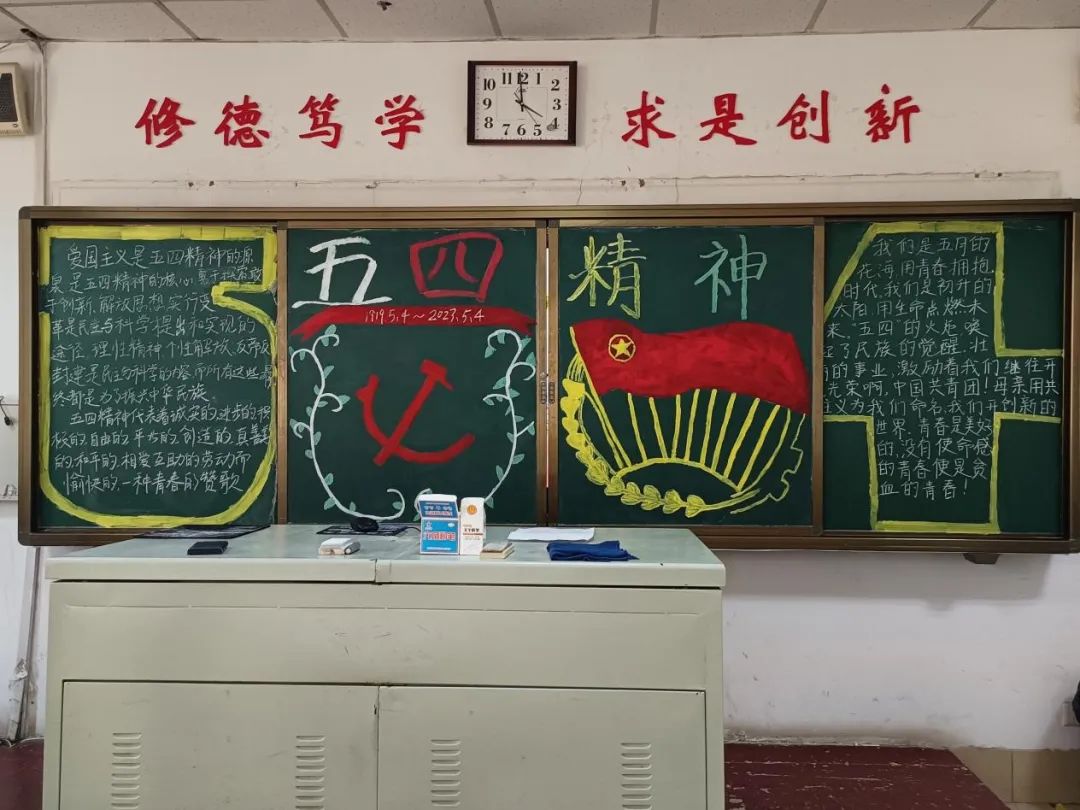 修德笃学
求是创新
爱国主义是五四精神的源
泉是五四精神的核心
于创新,解放思想,实行变
革是民主与科学提出和实现的
途径,理性精神,个性解放,反帝反
封建是民主与科学的内容,而所有这些
终都是为了振兴中华民族
五四精神代表着诚实的,进步的,积
极的,自由的,平等的,创造的,真善美
的,和平的,相爱互助的,劳动而
愉快的,一种青春的赞歌
五四
1919.5.4～2023.5.4
精神
我们是五月的
花海,用青春拥抱
时代,我们是初升的
太阳,用生命点燃未
来,"五四"的火炬唤
了民族的觉醒,壮
的事业,激励着我们继往开
光荣啊,中国共青团!母亲用共
主义为我们命名,我们开创新的
世界,青春是美好
的,没有使命感
的青春便是贫
血的青春!